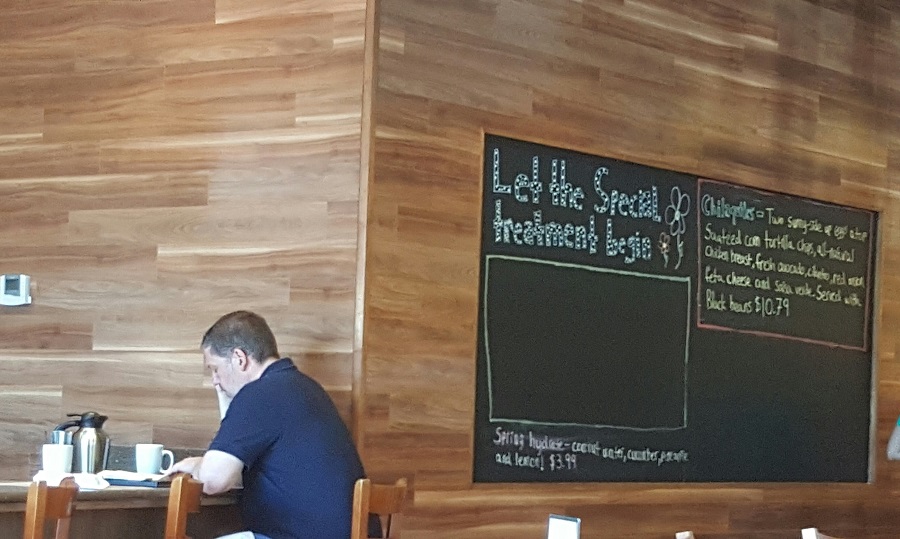 Let the Special
treatment begin
Chilaquiles - Two sunny-side up eggs atop
Sauteed corn tortilla chips, all-natural
Chicken breast, fresh avocado, cilantro, red onion,
feta cheese and salsa verde. Served with
Black beans $10.79
Spring hydrate - coconut water, cucumber, pineapple
and lemon! $3.99